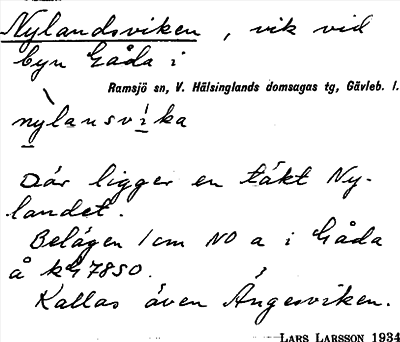 Nylandsviken, vik vid
byn Gåda i
Ramsjö sn, V. Hälsinglands domsagas tg, Gävleb. l.
nỳlansvíka
Där ligger en täkt Ny-
landet.
Belägen 1 cm NO a i Gåda
å k. G 7850.
Kallas även Ängesviken.
LARS LARSSON 1934